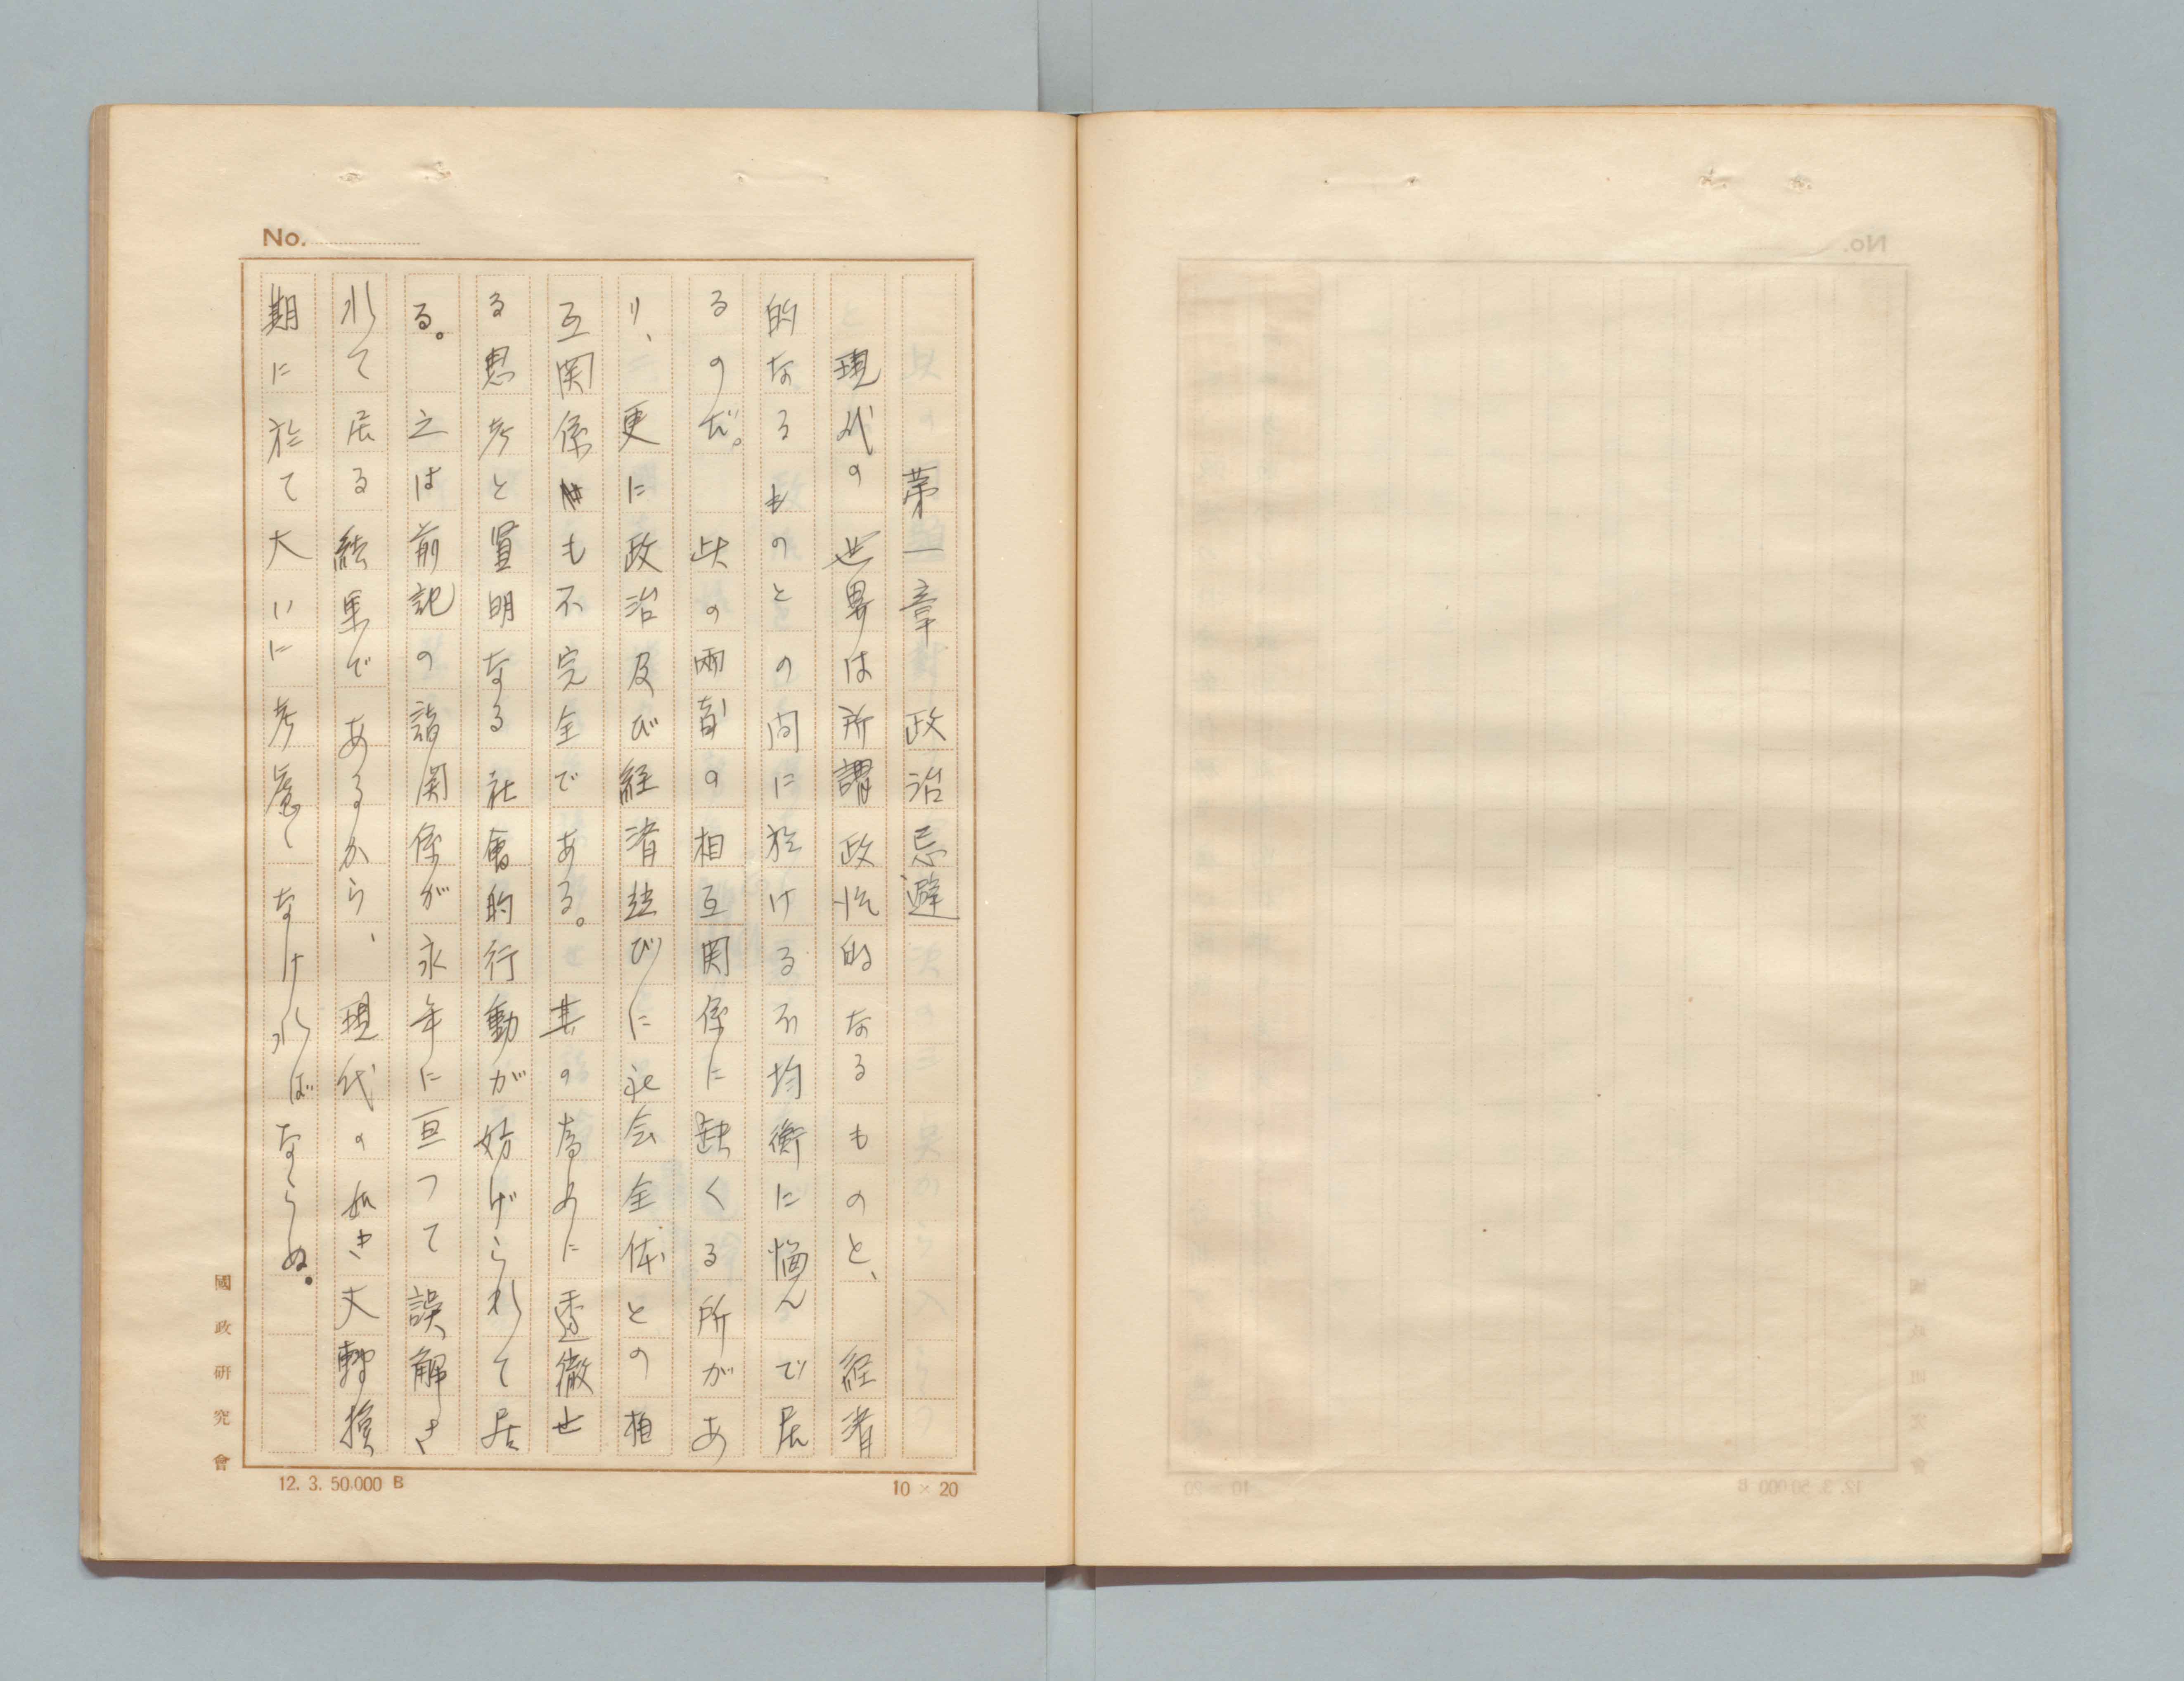 No.
第一章 政治忌避
現代の世界は所謂政治的なるものと、経済
的なるものとの間に於ける不均衡に悩んで居
るのだ。此の両者の相互関係に缺くる所があ
り、更に政治及び経済並びに社会全体との相
互関係も不完全である。其の為めに透徹せ
る思考と賢明なる社會的行動が妨げられて居
る。之は前記の諸関係が永年に亘つて誤解さ
れて居る結果であるから、現代の如き大轉換
期に於て大いに考慮しなければならぬ。
國政研究會
12. 3. 50.000 B
10 × 20